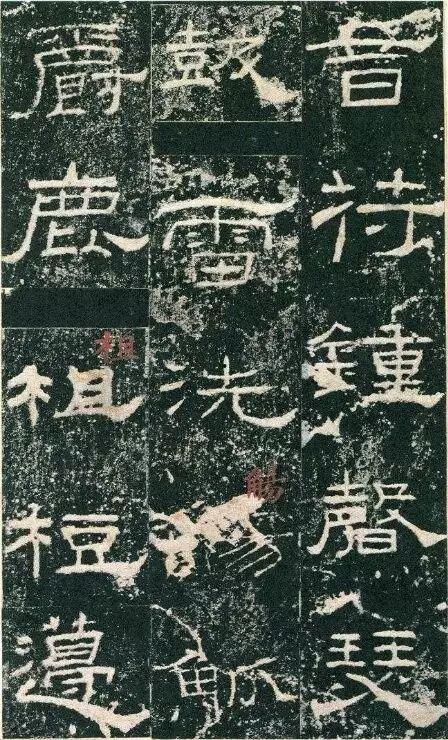 音苻鍾磬瑟
鼓雷洗觴觚
觴
爵鹿柤梪籩
柤